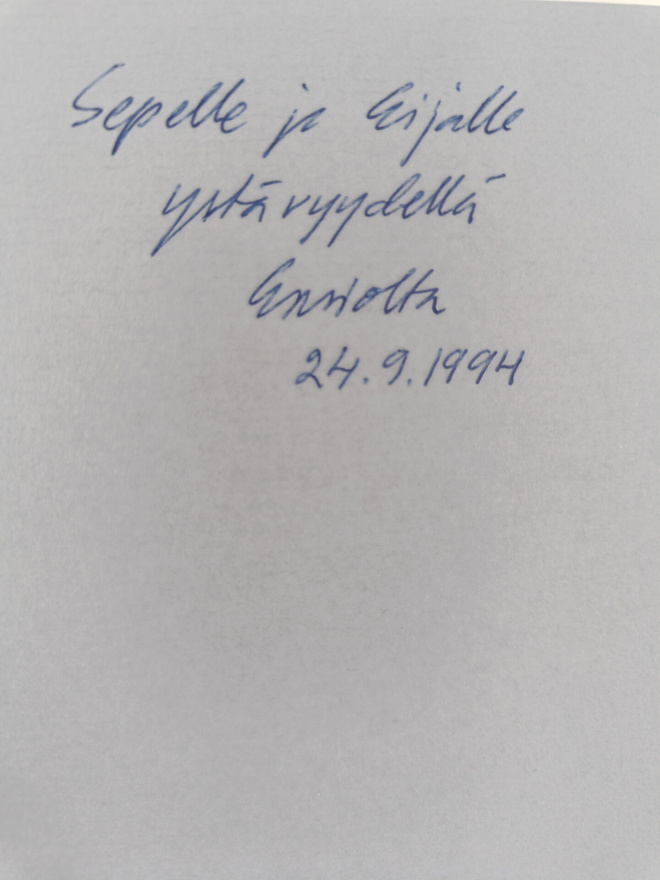 Sepelle ja Eijalle
ystävyydellä
Ensiolta
24.9.1994